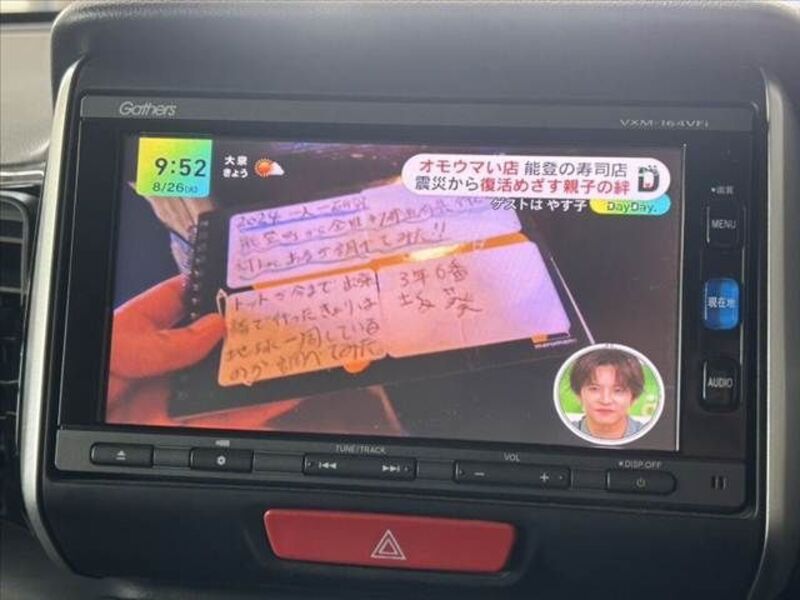 Gathers
VXM-164VFi
9:52
8/26(火)
大泉
きょう
オモウマい店 能登の寿司店
震災から復活めざす親子の絆
D
ゲストは やす子
DayDay.
2024 一人一研究
3年6番
トットが今まで出来
地球一周している
のか調べてみた。
画質
MENU
現在地
AUDIO
TUNE/TRACK
VOL
DISP OFF